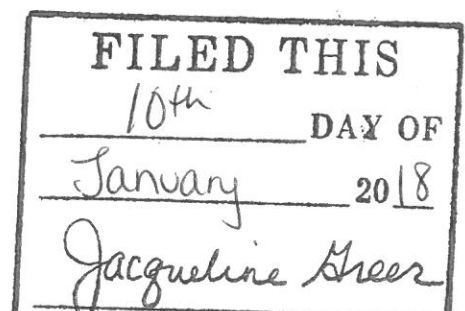 FILED THIS
10th DAY OF
January 2018
Jacqueline Greer